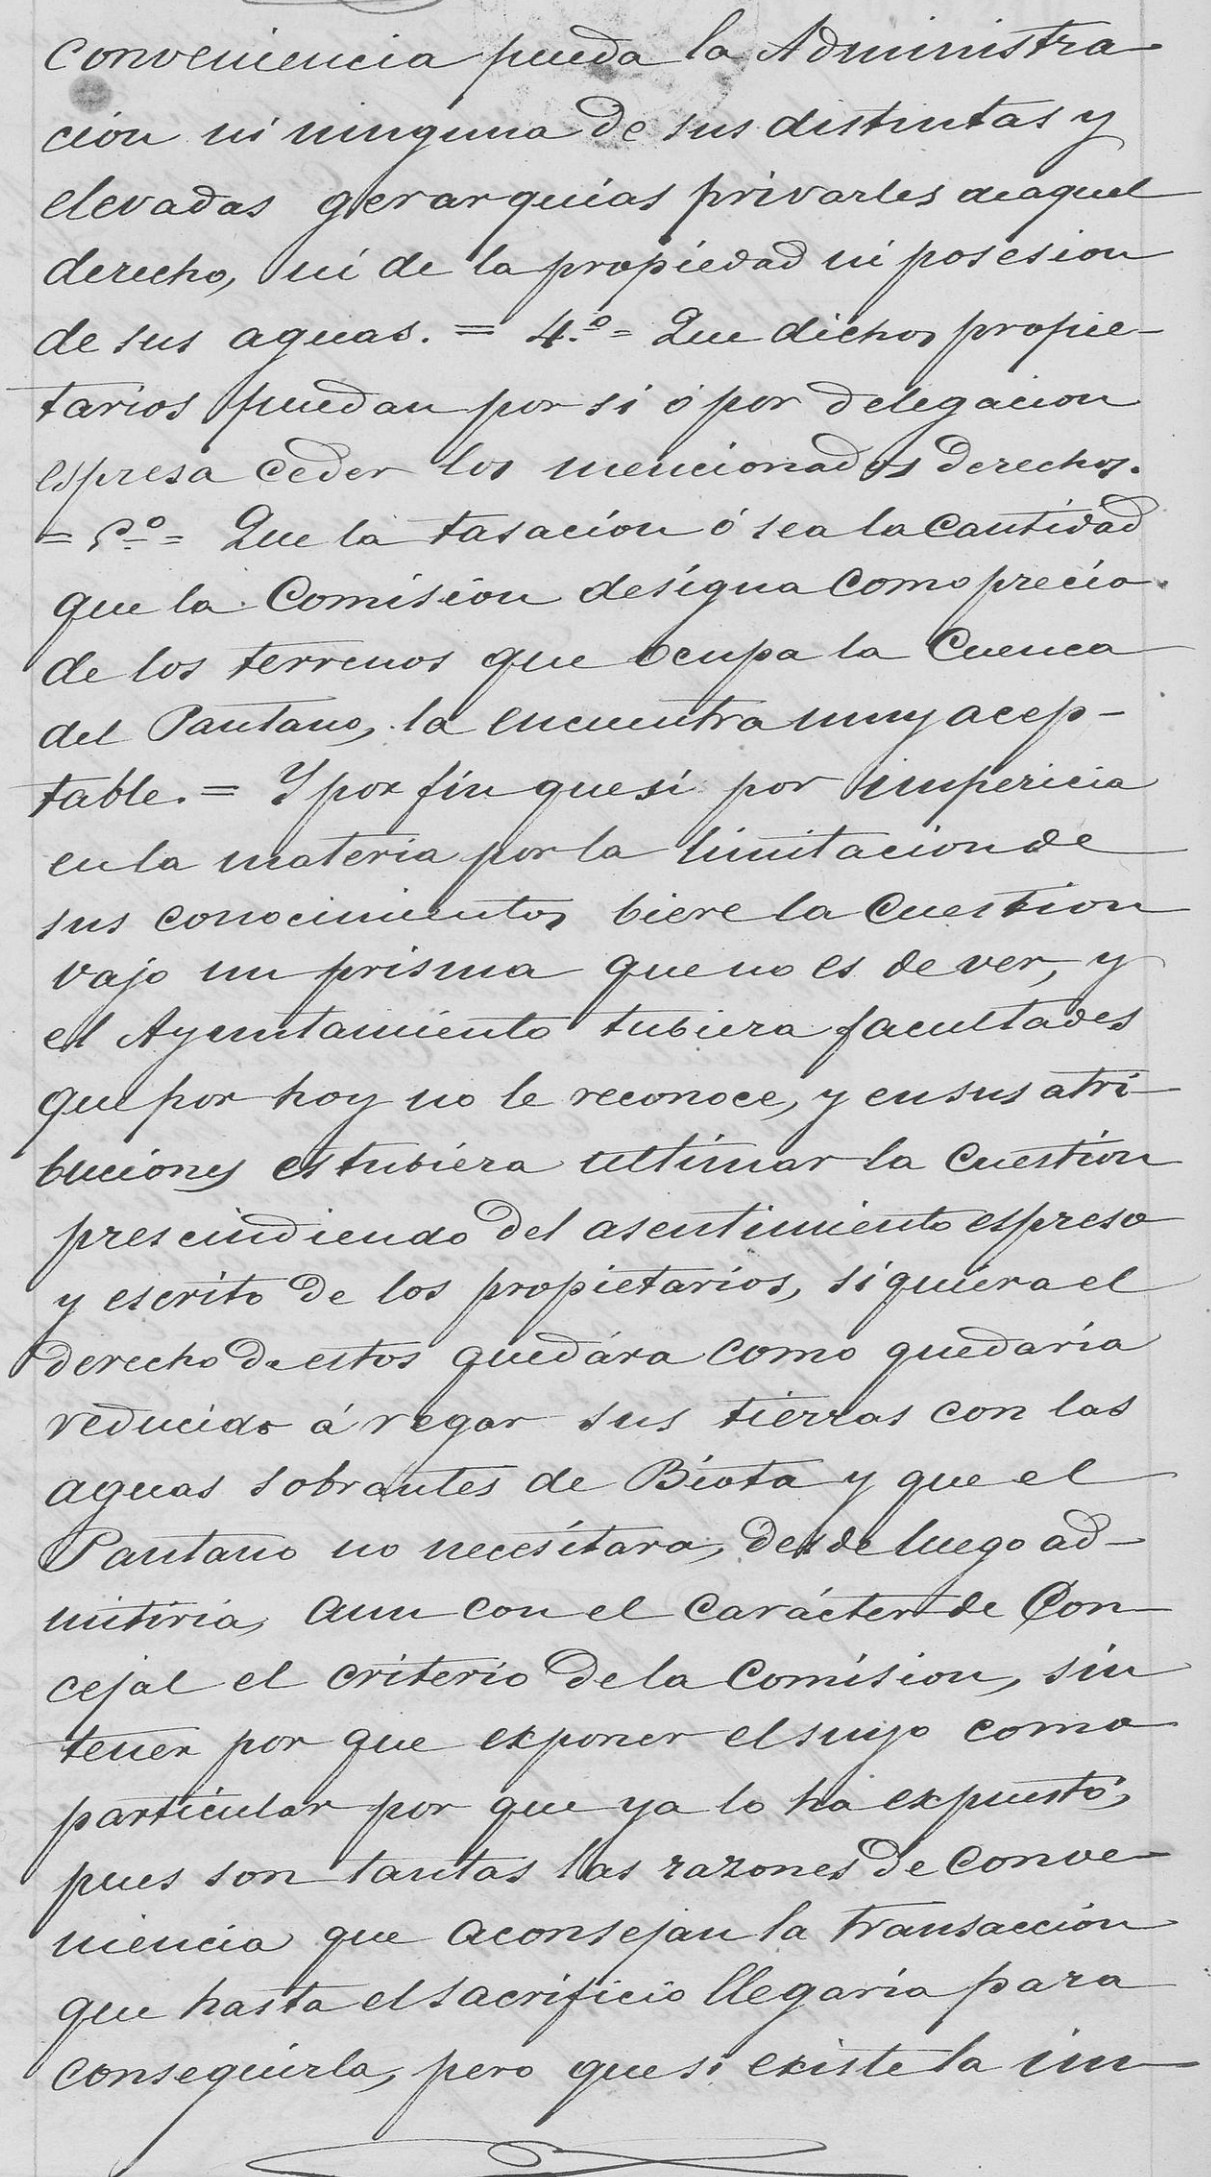 conveniencia pueda la Administra-
ción ni ninguna de sus distintas y
elevadas gerarquías privarles de aquel
derecho, ni de la propiedad ni posesion
de sus aguas. = 4.º = Que dichos propie-
tarios puedan por si ó por delegacion
espresa ceder los mencionados derechos.
= 5º = Que la tasación ó sea la cantidad
que la Comisión designa como precio
de los terrenos que ocupa la Cuenca
del Pantano, la encuentra muy acep-
table. = Y por fin que si por impericia
en la materia por la limitacion de
sus conocimientos biere la Cuestion
vajo un prisma que no es de ver, y
el Ayuntamiento tubiera facultades
que por hoy no le reconoce, y en sus atri-
buciones estubiera ultimar la Cuestión
prescindiendo del asentimiento espreso
y escrito de los propietarios, siquiera el
derecho de estos quedára como quedaría
reducido á regar sus tierras con las
aguas sobrantes de Biota y que el
Pantano no necesitara, desde luego ad-
mitiria, aun con el carácter de Con-
cejal el criterio de la Comision, sin
tener por que exponer el suyo como
particular por que ya lo ha expuesto,
pues son tantas las razones de conve-
niencia que aconsejan la transacción
que hasta el sacrificio llegaria para
conseguirla, pero que si existe la im-